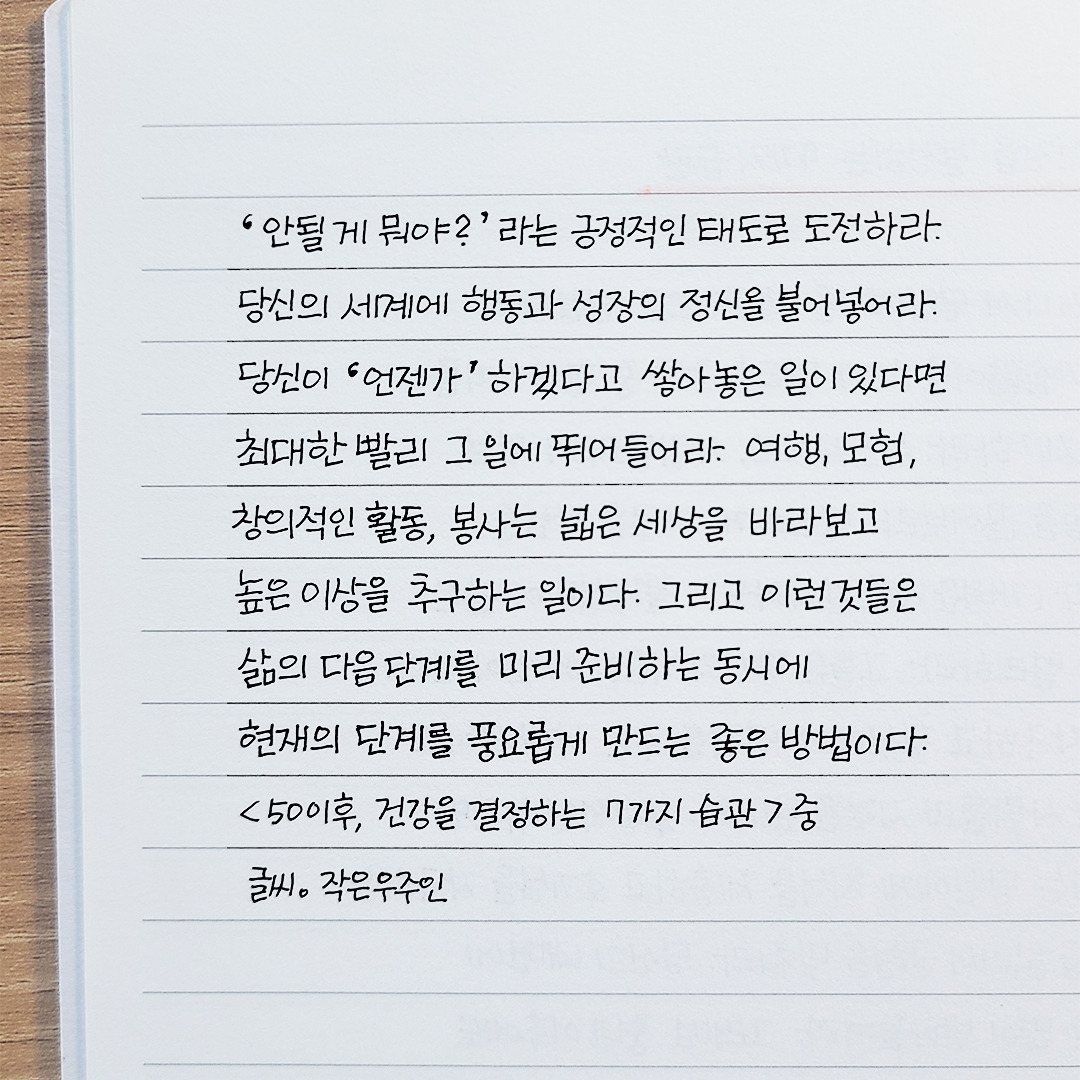 ‘안될게 뭐야?’라는 긍정적인 태도로 도전하라.
당신의 세계에 행동과 성장의 정신을 불어넣어라.
당신이 ‘언젠가’ 하겠다고 쌓아놓은 일이 있다면
최대한 빨리 그 일에 뛰어들어라. 여행, 모험,
창의적인 활동, 봉사는 넓은 세상을 바라보고
높은 이상을 추구하는 일이다. 그리고 이런것들은
삶의 다음단계를 미리 준비하는 동시에
현재의 단계를 풍요롭게 만드는 좋은 방법이다.
<50이후, 건강을 결정하는 7가지 습관> 중
글씨。작은우주인